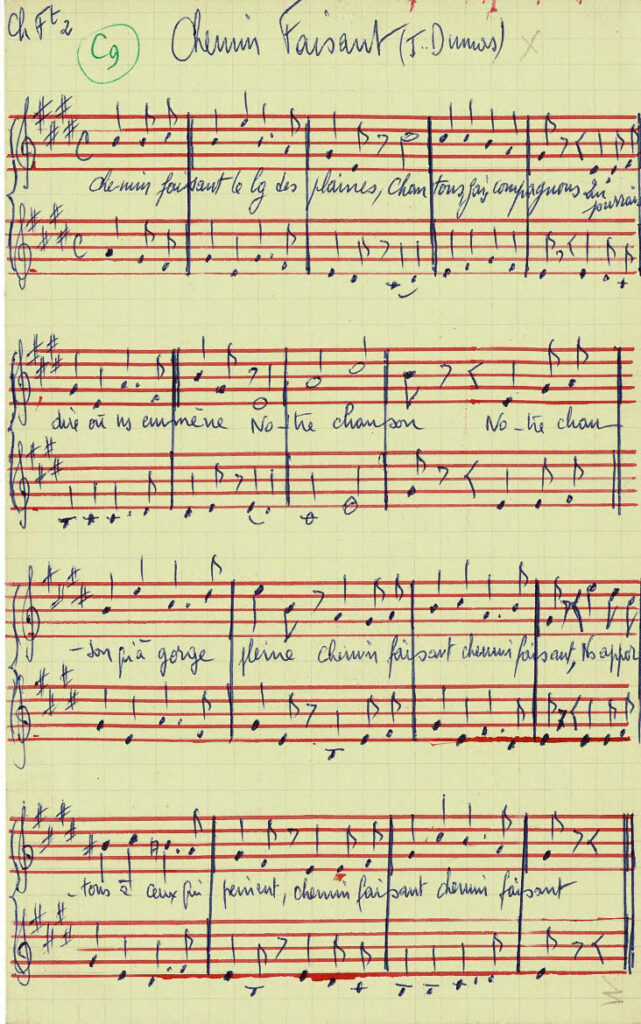 Ch Ft 2
C9
Chemin Faisant (J. Dumas) X
chemin faisant le lg des plaines, chantons gai, compagnons qui
pourrait
dire où ns emmène No-tre chanson No-tre chan
-son qui à gorge pleine chemin faisant chemin faisant, Ns appor
-tons à ceux qui peinent, chemin faisant chemin faisant